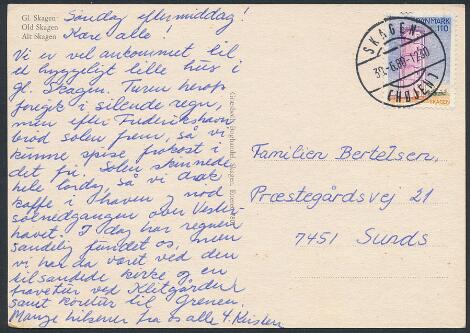 Gl. Skagen
Old Skagen
Alt Skagen
Søndag eftermiddag!
Kære alle!
Vi er vel ankommet til
et hyggeligt lille hus i
gl. Skagen. Turen herop
foregik i silende regn,
men efter Frederikshavn
brød solen frem, så vi
kunne spise frokost i
det fri. Solen skinnede
hele lørdag, så vi drak
kaffe i haven og nød
solnedgangen over Vester-
havet. I dag har regnen
sandelig fundet os, men
vi har da været ved den
tilsandede kirke og en
travetur ved Klitgården
samt køretur til Grenen.
Mange hilsener fra os alle 4. Kirsten
Familien Bertelsen,
Præstegårdsvej 21
7451 Sunds
SKAGEN
DANMARK
110